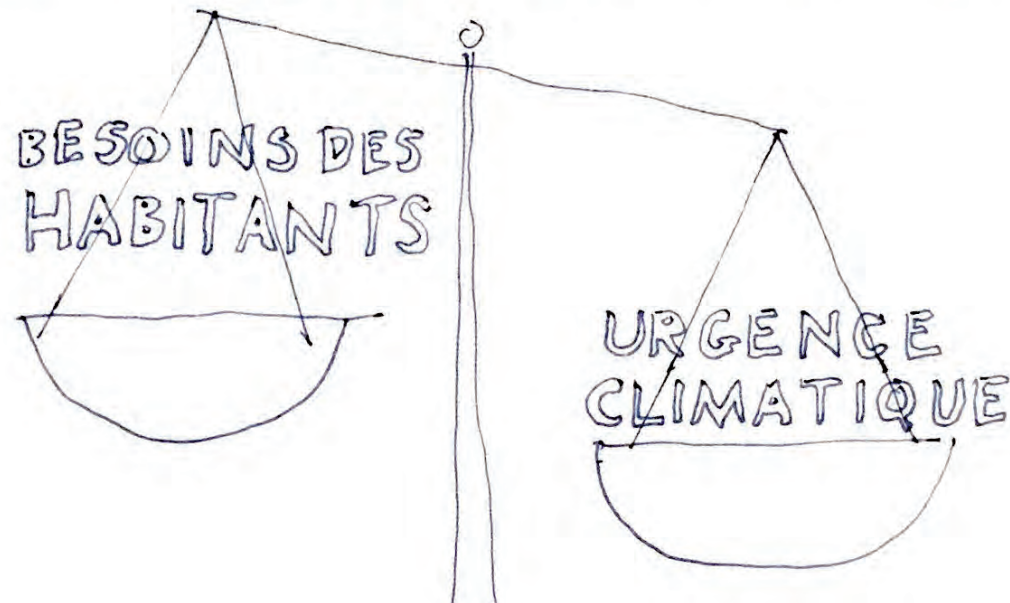 BESOINS DES
HABITANTS
URGENCE
CLIMATIQUE